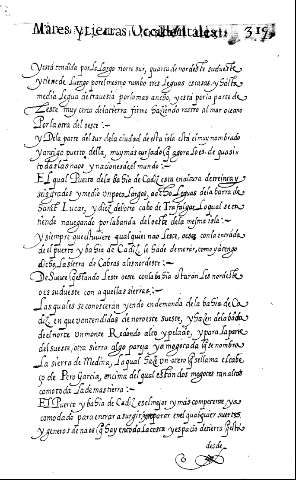 Mares y tierras Occidentales: 319
y está tendida por lo largo norte sur, quarta de nordeste sudueste
y tiene de largo por el mesmo rumbo tres leguas escasas, y hasta
media legua y la travesia por lo mas ancho, y está por la parte de
Leste muy cerca de la tierra firme haziendo rastro al mar oceano
Por la otra del oeste :~
y De la parte del sur de la ciudad de esta isla esta el muy nombrado
y antiguo puerto della, muy mas cursado agora lo es, de quasi
todas las naos y naciones del mundo :~
El qual Puerto de la bahia de Cadiz esta en altura de treinta y
seis grados y medio un poco largos, ocho Leguas de la barra de
Sanct Lucar, y diez del cabo de Trafalgar, lo qual se en
tiende navegando por la banda del oeste de la mesma isla :~
y siempre que estuviere qualquier nao Leste, oeste con la entrada
de el puerto y bahia de Cadiz, le ha de demorar, como ya tengo
dicho, La sierra de Cabras al es nordeste :~
De Suerte estando Leste oeste con la bahia estaran les nordeste
oes sudueste con aquellas sierras :~
Las quales se conosceran yendo en demanda de la bahia de Ca
diz, en que van tendidas de noroeste sueste, y hazen de la banda
del norte Un monte Redondo alto y pelado, y para la parte
del sueste, otra sierra algo pareja ya mogotada que se nombra
La sierra de Medina, La qual haze un otero que llaman el cabe
ço de Pero Garcia, encima del qual estan dos mogotes tan altos
como toda La demas tierra :~
El Puerto y bahia de Cadiz es el mejor y mas competente, y a
comodado para entrar a surgir, y reparar en el qualquier suertes
y generos de naos que hay en toda la costa y espacio de tierra
desde